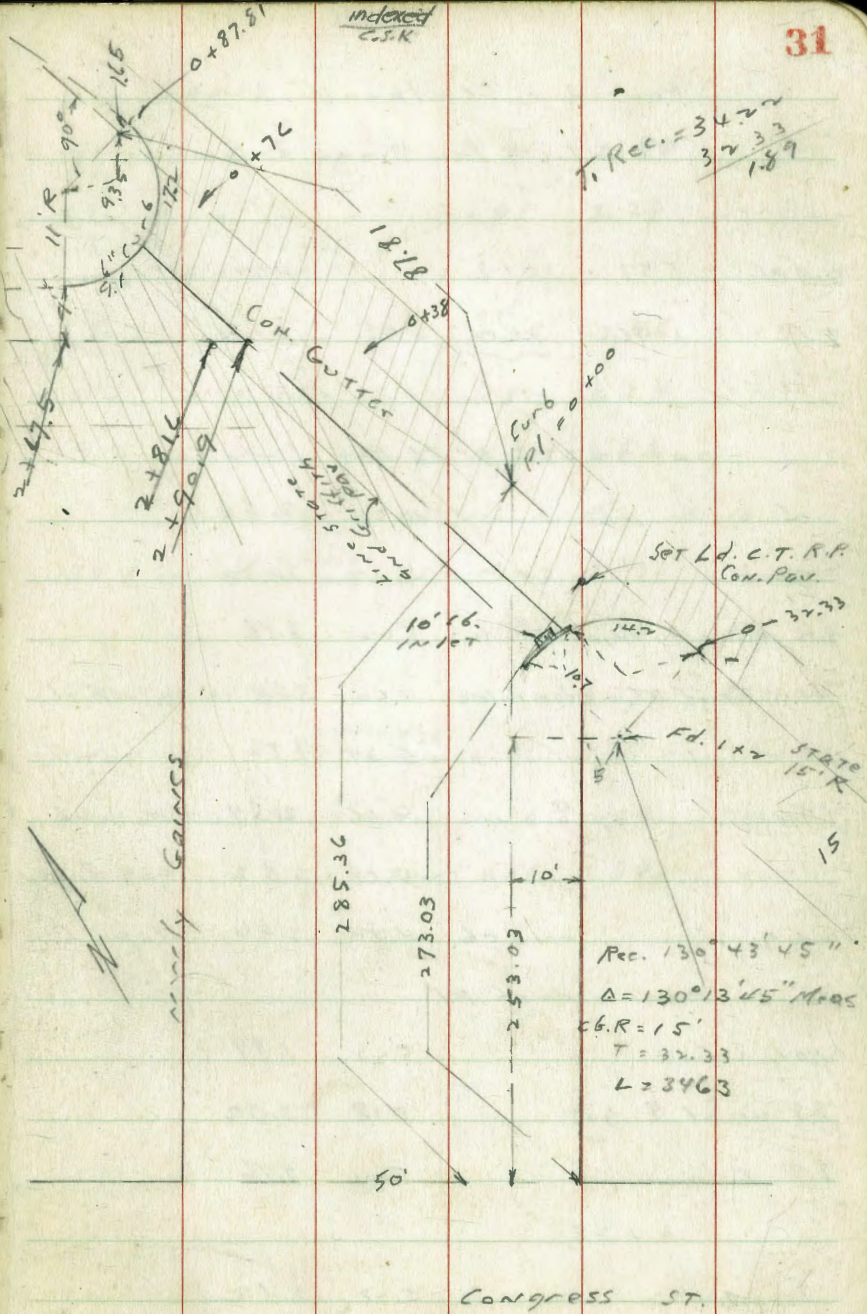 indexed
C.S.K
31
0+87.81
1.65
90°
T, Rec. = 34.22
32.33
1.89
0+76
11'R
9.35
17.2
6" Curb
9.1
87.81
9'
0+38
Con. Gutter
2+67.5
2+81.6
2+90.19
Curb
P.I. = 0+00
Line State
and Griffith
Pav
Set Ld. C.T. R.P.
Con. Pav.
10' cb.
Inlet
14.2
0-32.33
10.7
Fd. 1x2
State
15'R
5
15
Gaines
285.36
273.03
253.03
10'
Rec. 130°43'45"
Δ=130°13'45" Meas
cb.R = 15'
T = 32.33
L = 3463
50'
Congress ST.